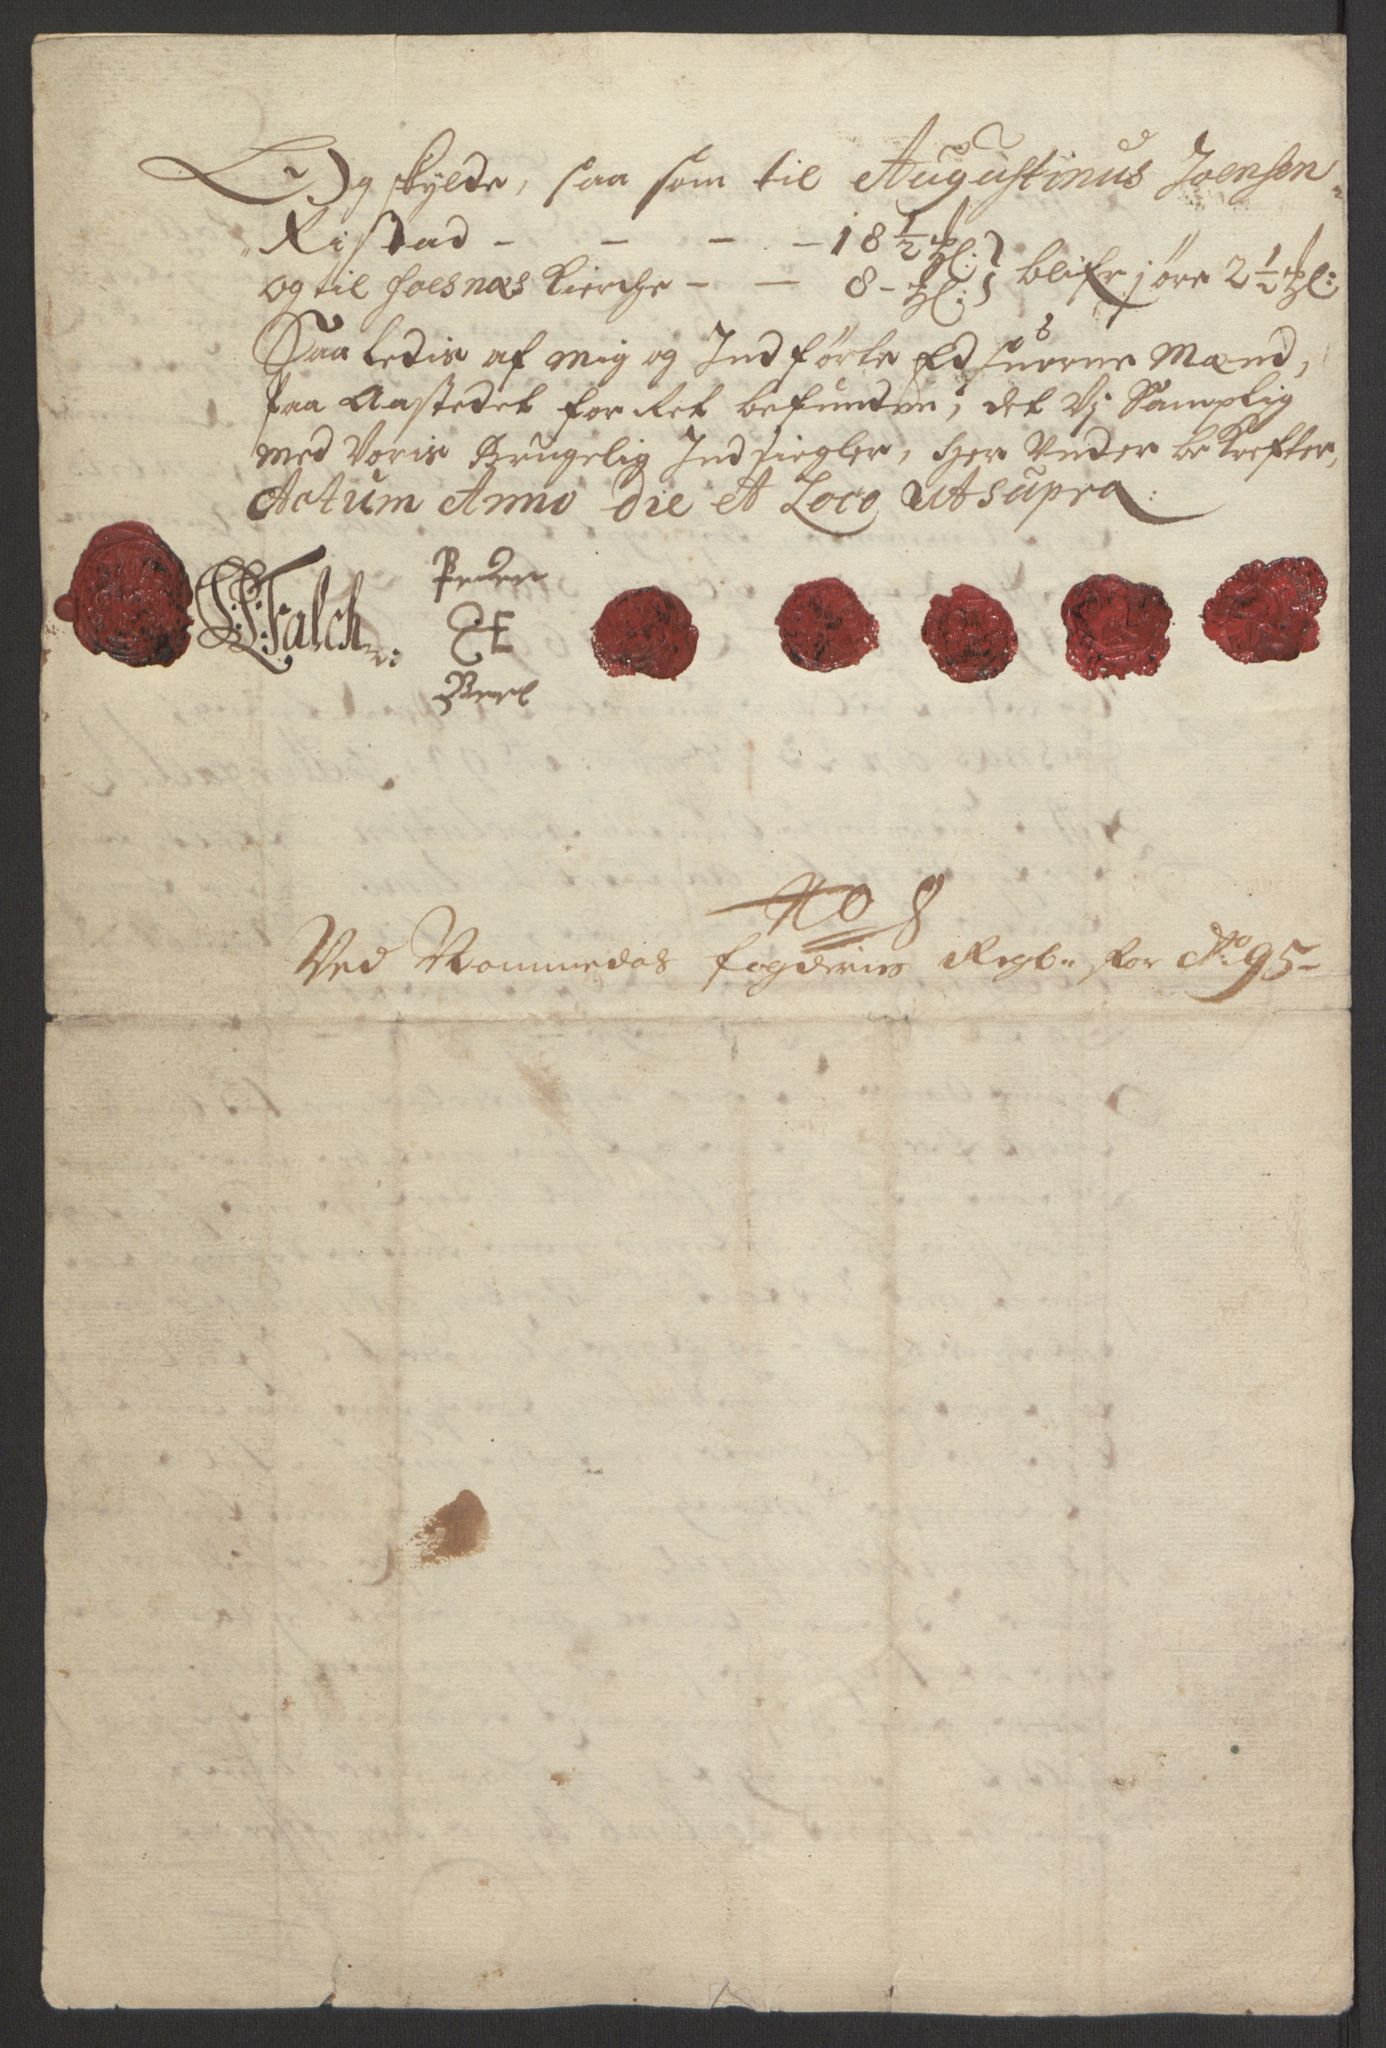 Og skylde, saa som til Augustinus Joensen
Ristad - - - - 18 1/2 ℔:
og til Foesnæs Kierche - - 8 - ℔: blifr j øre 2 1/2 ℔:
Saaledis af mig og Indførte Edsuorne Mænd,
paa Aastedet for Ret befunden, det Vj Samptlig
med Voris Brugelig Indsiegler, her Under bekrefter,
Actum Anno die et Loco ut supra:
Falch
Peder
Berl
No 8
Ved Nommedals fogderies Regb: for Ao: 95-